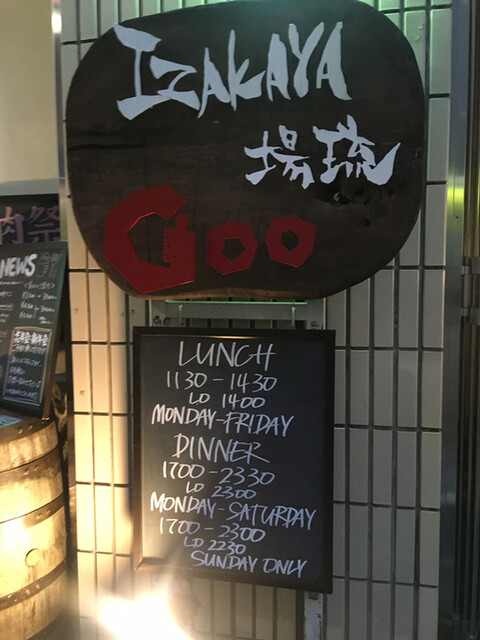 IZAKAYA
場琉
Goo
LUNCH
1130-1430
LO 1400
MONDAY-FRIDAY
DINNER
1700-2330
LO 2300
MONDAY-SATURDAY
1700-2300
LO 2230
SUNDAY ONLY
肉祭
NEWS
忘年会・新年会